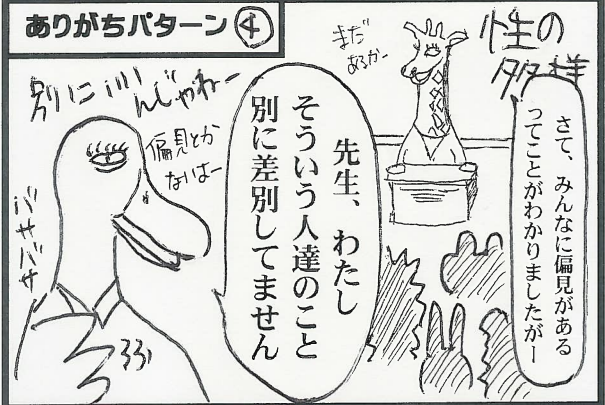 ありがちパターン④
性の
多様
まだ
あるかー
さて、みんなに偏見がある
ってことがわかりましたがー
先生、わたし
そういう人達のこと
別に差別してません
別にいいんじゃねー
偏見とか
ないはー
バサバサ